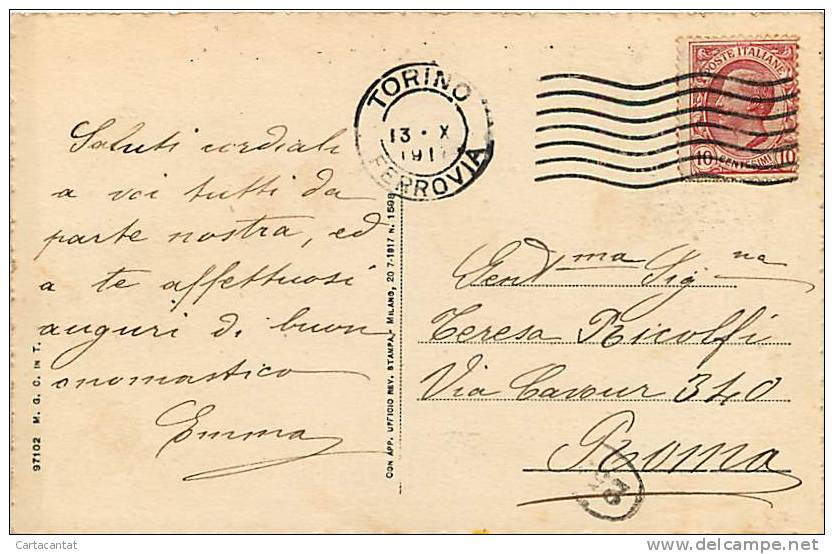 Saluti cordiali
a voi tutti da
parte nostra, ed
a te affettuosi
auguri di buon
onomastico
Emma
97102 M. G. C. IN T.
CON APP. UFFICIO REV. STAMPA - MILANO, 20-7-1917 N. 1598
TORINO
13 · X
191
FERROVIA
POSTE ITALIANE
10 CENTESIMI 10
Gent.ma Sig.na
Teresa Ricolfi
Via Cavour 340
Roma
Cartacantat
delcampe.net